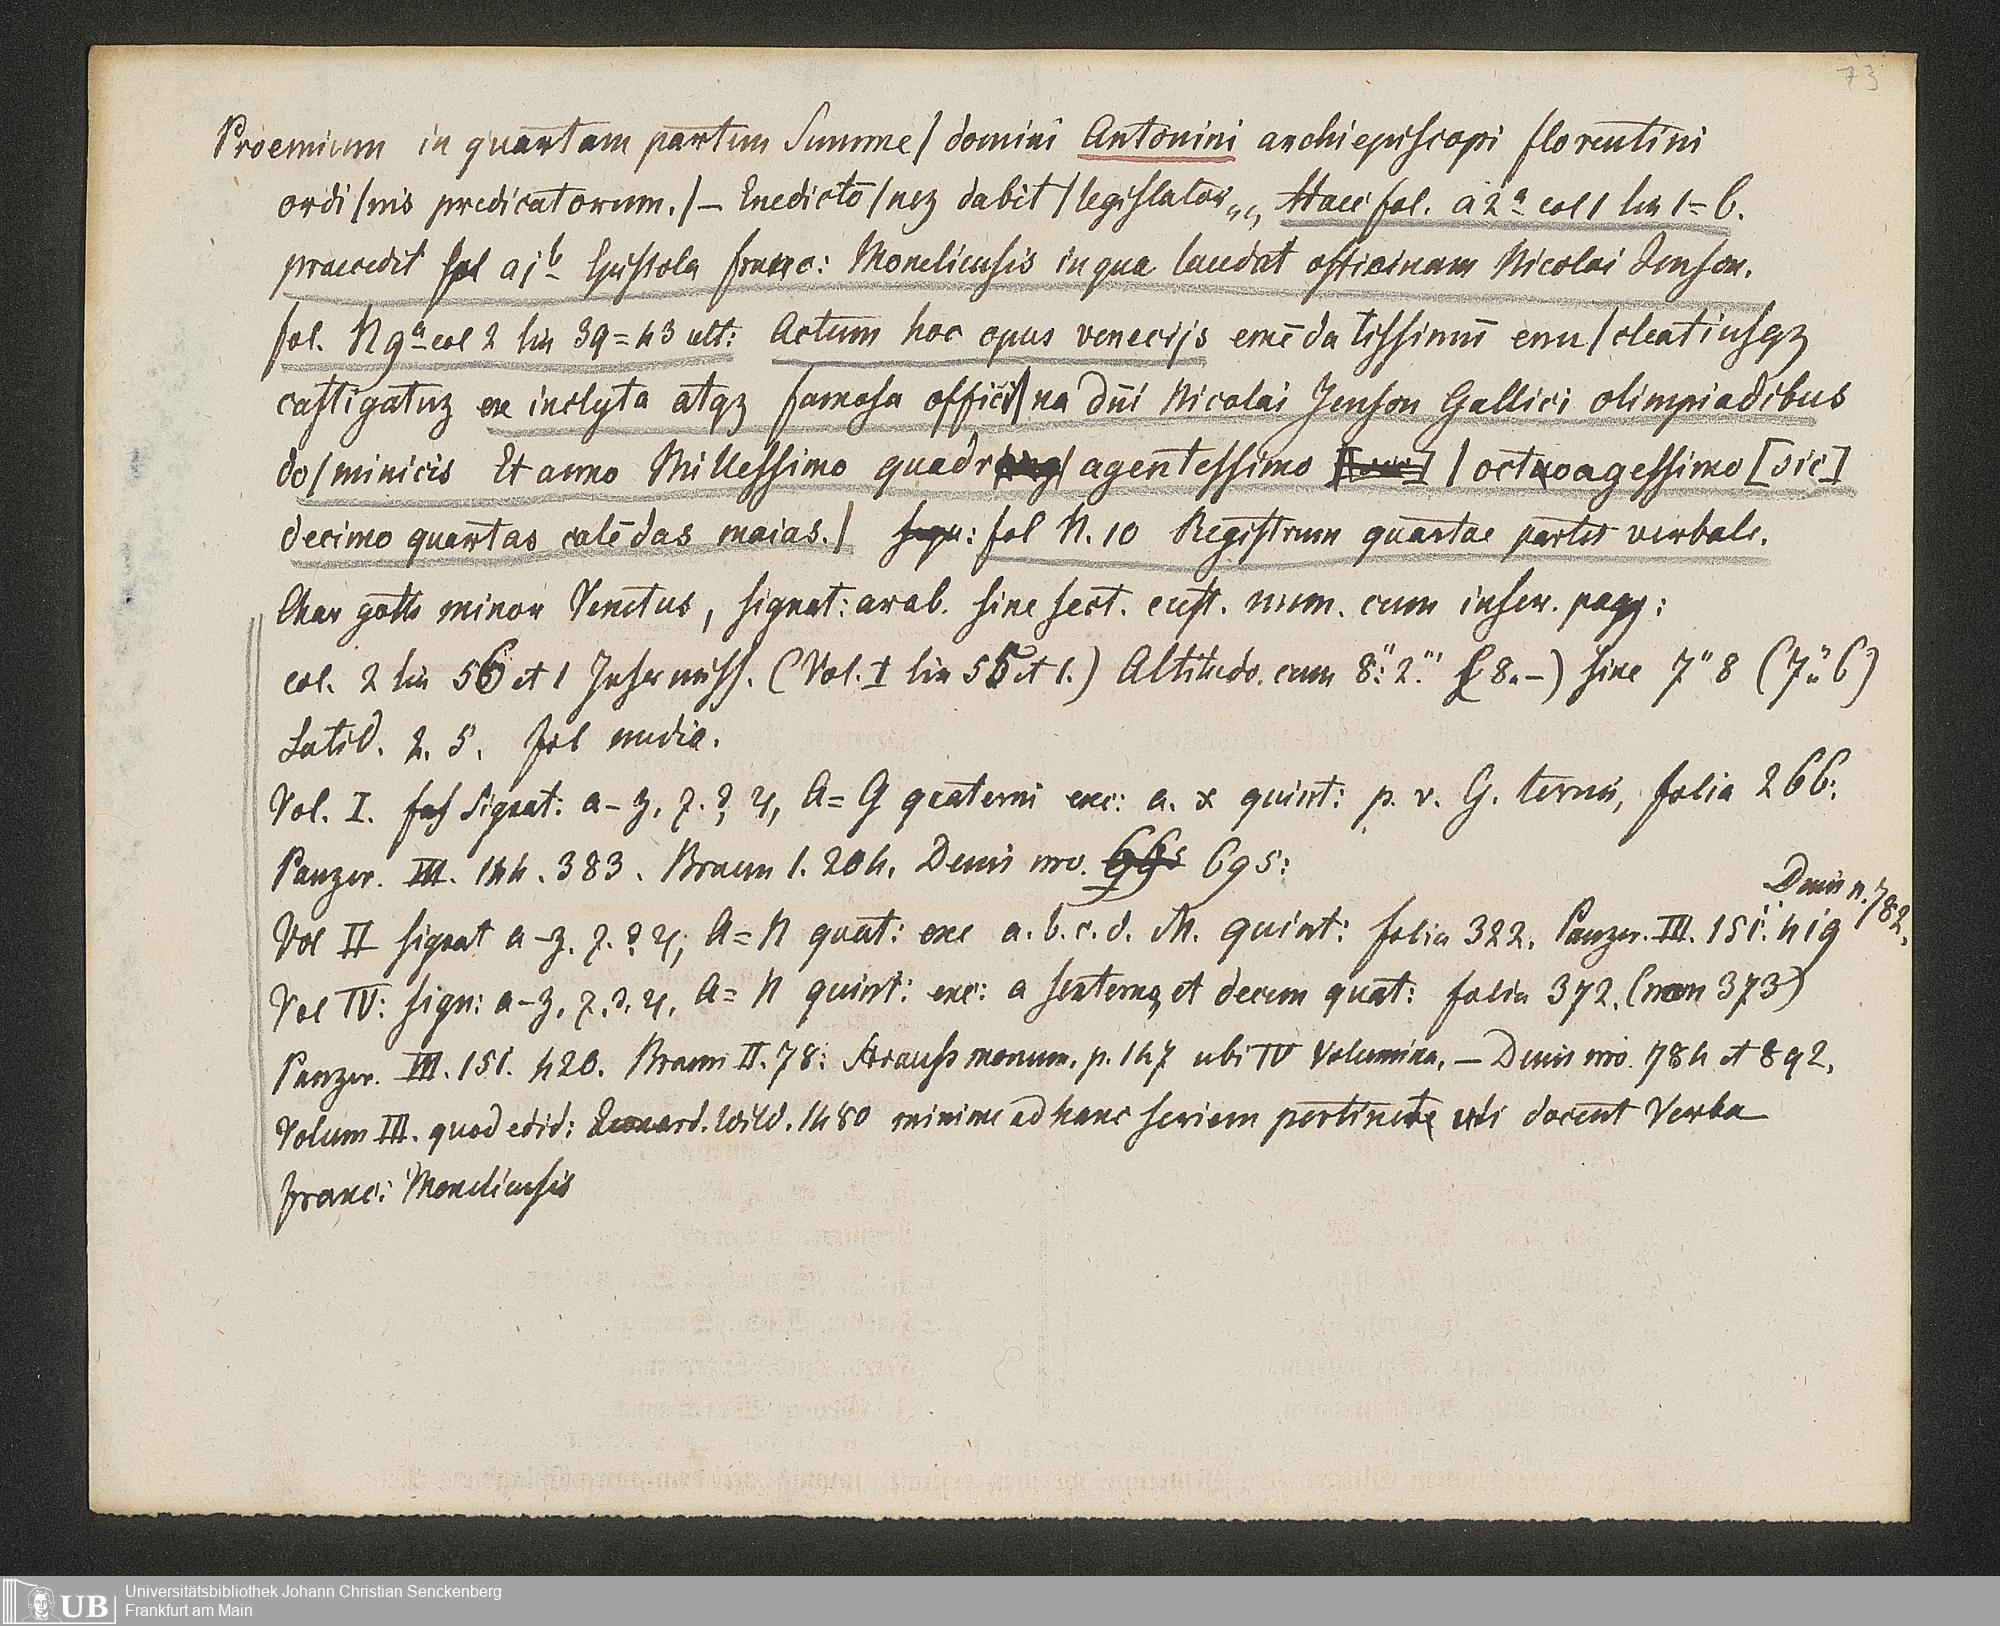 73
Proemium in quartam partem Summe / domini Antonini archiepiscopi florentini
ordi/nis predicatorum./ – Enedicto/nez dabit / legislator „„ Haec fol. a 2ª col 1 lin 1 = 6.
praecedit fol a j b Epistola franc: Moneliensis in qua laudat officinam Nicolai Jenson.
fol. N 9ª col 2 lin 39 = 43 ult: Actum hoc opus venecijs emēdatissimū enu/cleatiusqz
castigatuz ex inclyta atqz famosa offici/na dn̄i Nicolai Jenson Gallici olimpiadibus
do/minicis Et anno Millessimo quadr agentessimo / octuoagessimo [sic]
decimo quartas calēdas maias./ sequ: fol N. 10 Registrum quartae partis verbale.
Char goth minor Venetus, signat: arab. sine sect. cust. num. cum inscr. pagg:
col. 2 lin 56 et 1 Inscr miss. (Vol. I lin 55 et 1.) Altitudo. cum 8": 2"' (8. –) sine 7" 8 (7" 6)
Latid. 2. 5. fol media.
Vol. I. Signat: a – z, ꝛ. ꝯ, ꝝ, A = G quaterni exc: a. x quint: p. v. G. terni, folia 266:
Panzer. III. 144. 383. Braun 1. 204. Denis nro. 695:
Denis n. 782.
Vol II signat a – z. ꝛ. ꝯ ꝝ, A = N quat: exc a. b. c. d. M. quint: folia 322. Panzer. III. 151. 419
Vol IV: sign: a – z, ꝛ. ꝯ. ꝝ, A = N quint: exc: a sexterno, et decem quat: folia 372. (non 373)
Panzer. III. 151. 420. Braun II. 78: Strauss monum. p. 147 ubi IV Volumina. – Denis nro. 784 et 892.
Volum III. quod edid: Leonard. Wild. 1480 minime ad hanc seriem pertinet uti docent Verba
franc: Moneliensis
UB
Universitätsbibliothek Johann Christian Senckenberg
Frankfurt am Main